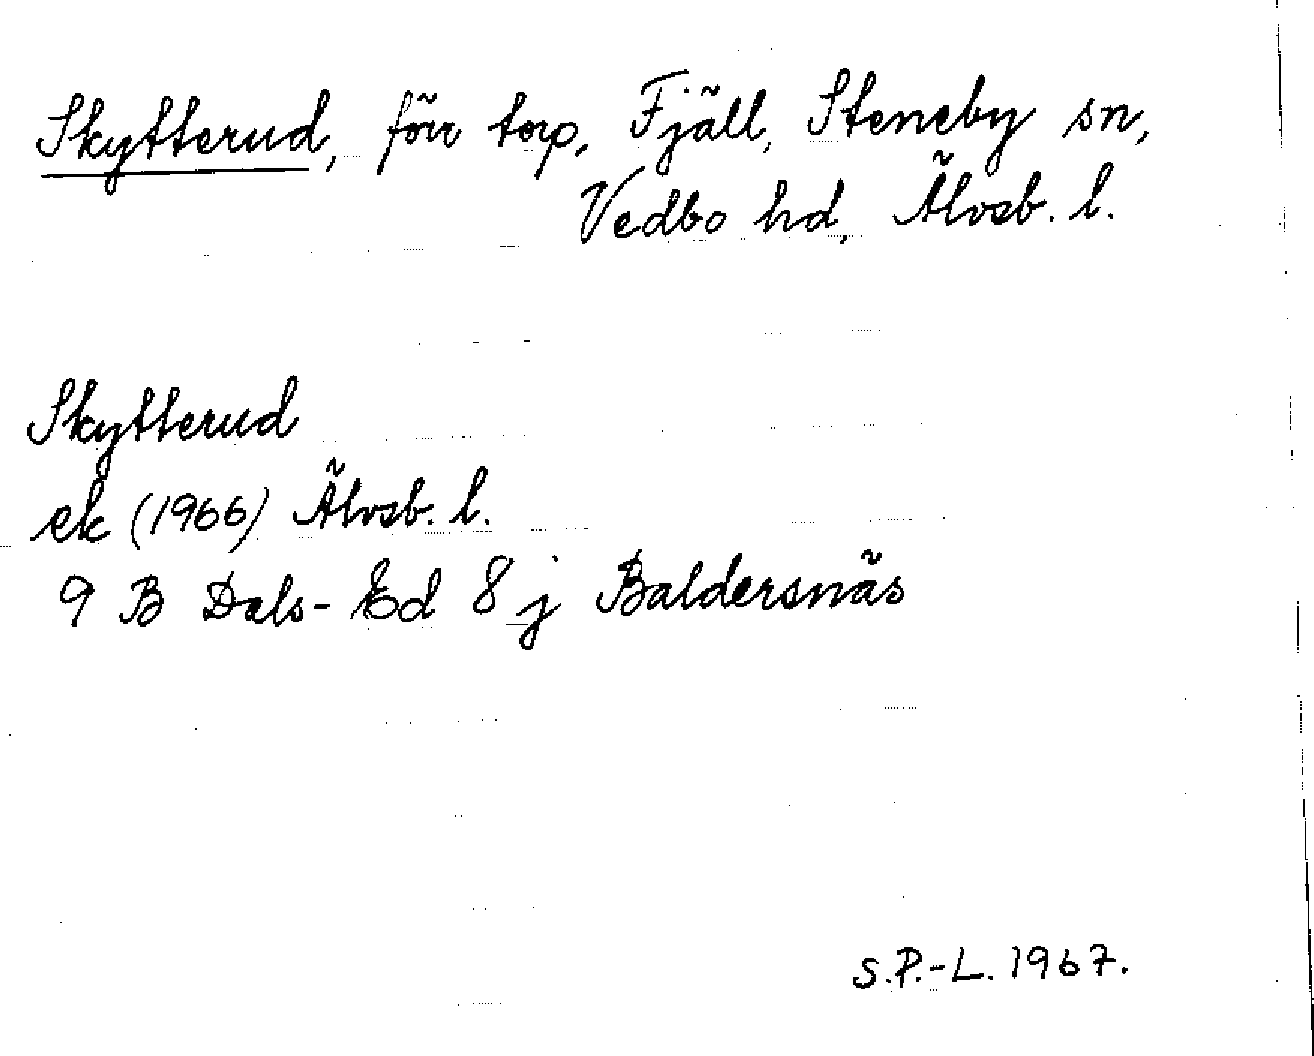 Skytterud, förr torp, Fjäll, Steneby sn,
Vedbo hd, Älvsb. l.
Skytterud
ek (1966) Älvsb. l.
9 B Dals-Ed 8 j Baldersnäs
S.P.-L. 1967.